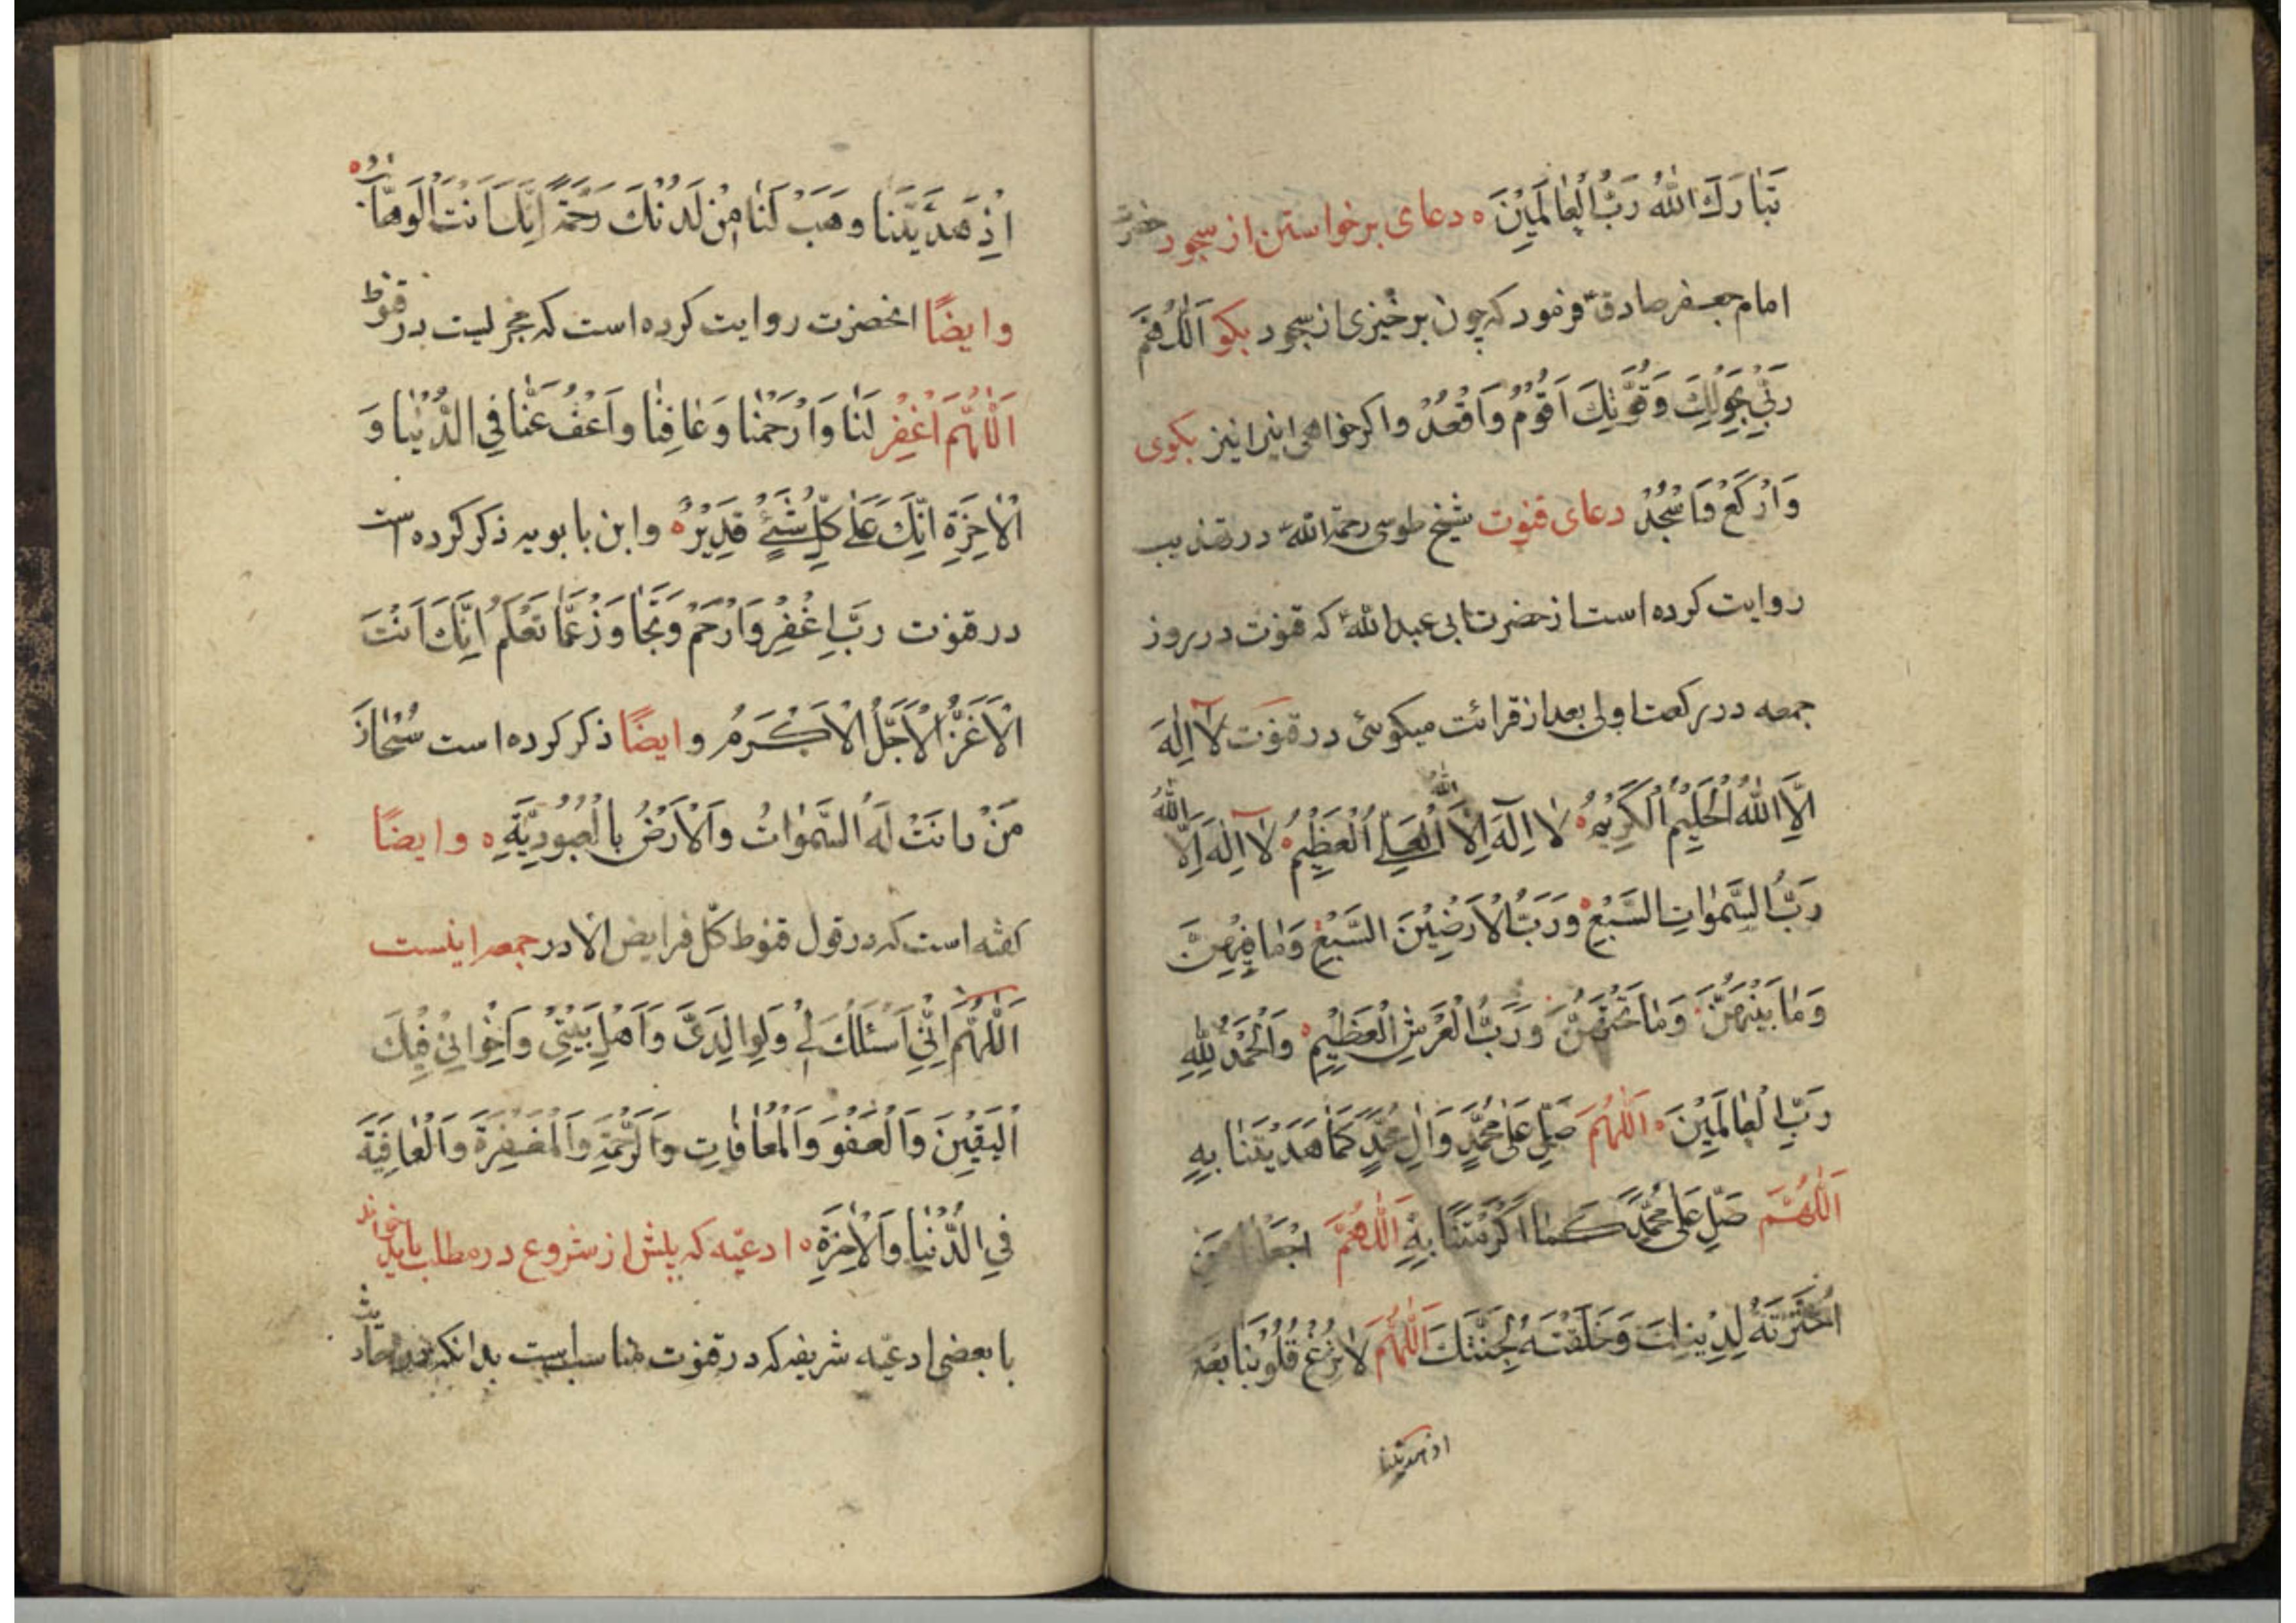 تَبَارَكَ اللّٰهُ رَبُّ الْعَالَمِيْنَ ه دعای برخواستن از سجود حضرت
امام جعفر صادقؑ فرمود که چون برخیزی از سجود بکو اَللّٰهُمَّ
رَبِّيْ بِحَوْلِكَ وَقُوَّتِكَ اَقُوْمُ وَاَقْعُدُ واکر خواهی اینرا نیز بکوی
وَاَرْكَعُ وَاَسْجُدُ دعای قنوت شیخ طوسی رحمة الله در تهذیب
روایت کرده است از حضرت ابی عبداللهؑ که قنوت در روز
جمعه در رکعت اولی بعد از قرائت میکوئی در قنوت لَآ اِلٰهَ
اِلَّا اللّٰهُ الْحَلِيْمُ الْكَرِيْمُ ه لَا اِلٰهَ اِلَّا اللّٰهُ الْعَلِيُّ الْعَظِيْمُ ه لَا اِلٰهَ اِلَّا اللّٰهُ
رَبُّ السَّمٰوَاتِ السَّبْعِ وَرَبُّ الْاَرَضِيْنَ السَّبْعِ وَمَا فِيْهِنَّ
وَمَا بَيْنَهُنَّ وَمَا تَحْتَهُنَّ وَرَبُّ الْعَرْشِ الْعَظِيْمِ وَالْحَمْدُ لِلّٰهِ
رَبِّ الْعَالَمِيْنَ ه اَللّٰهُمَّ صَلِّ عَلٰى مُحَمَّدٍ وَاٰلِ مُحَمَّدٍ كَمَا هَدَيْتَنَا بِهِ
اَللّٰهُمَّ صَلِّ عَلٰى مُحَمَّدٍ كَمَا اَكْرَمْتَنَا بِهِ اَللّٰهُمَّ اجْعَلْنَا مِمَّنِ
اخْتَرْتَهُ لِدِيْنِكَ وَخَلَقْتَهُ لِجَنَّتِكَ اَللّٰهُمَّ لَا تُزِغْ قُلُوْبَنَا بَعْدَ
اذ هدیتنا
اِذْ هَدَيْتَنَا وَهَبْ لَنَا مِنْ لَدُنْكَ رَحْمَةً اِنَّكَ اَنْتَ الْوَهَّابُ ه
وایضًا انحضرت روایت کرده است که مجزلیت در قنوط
اَللّٰهُمَّ اغْفِرْ لَنَا وَارْحَمْنَا وَعَافِنَا وَاعْفُ عَنَّا فِي الدُّنْيَا وَ
الْاٰخِرَةِ اِنَّكَ عَلٰى كُلِّ شَيْءٍ قَدِيْرٌ ه وابن بابویه ذکر کرده است
در قنوت رَبِّ اغْفِرْ وَارْحَمْ وَتَجَاوَزْ عَمَّا تَعْلَمُ اِنَّكَ اَنْتَ
الْاَعَزُّ الْاَجَلُّ الْاَكْرَمُ وایضًا ذکر کرده است سُبْحَانَ
مَنْ دَانَتْ لَهُ السَّمٰوَاتُ وَالْاَرْضُ بِالْعُبُوْدِيَّةِ ه وایضًا
کفته است که در قول قنوط کلّ فرایض الا در جمعه اینست
اَللّٰهُمَّ اِنِّيْ اَسْئَلُكَ لِيْ وَلِوَالِدَيَّ وَاَهْلِ بَيْتِيْ وَاِخْوَانِيْ فِيْكَ
الْيَقِيْنَ وَالْعَفْوَ وَالْمُعَافَاتِ وَالرَّحْمَةَ وَالْمَغْفِرَةَ وَالْعَافِيَةَ
فِي الدُّنْيَا وَالْاٰخِرَةِ ه ادعیّه که پیش از شروع در مطالب باید خواند
با بعضی ادعیّه شریفه که در قنوت مناسب است بدانکه در احادیث